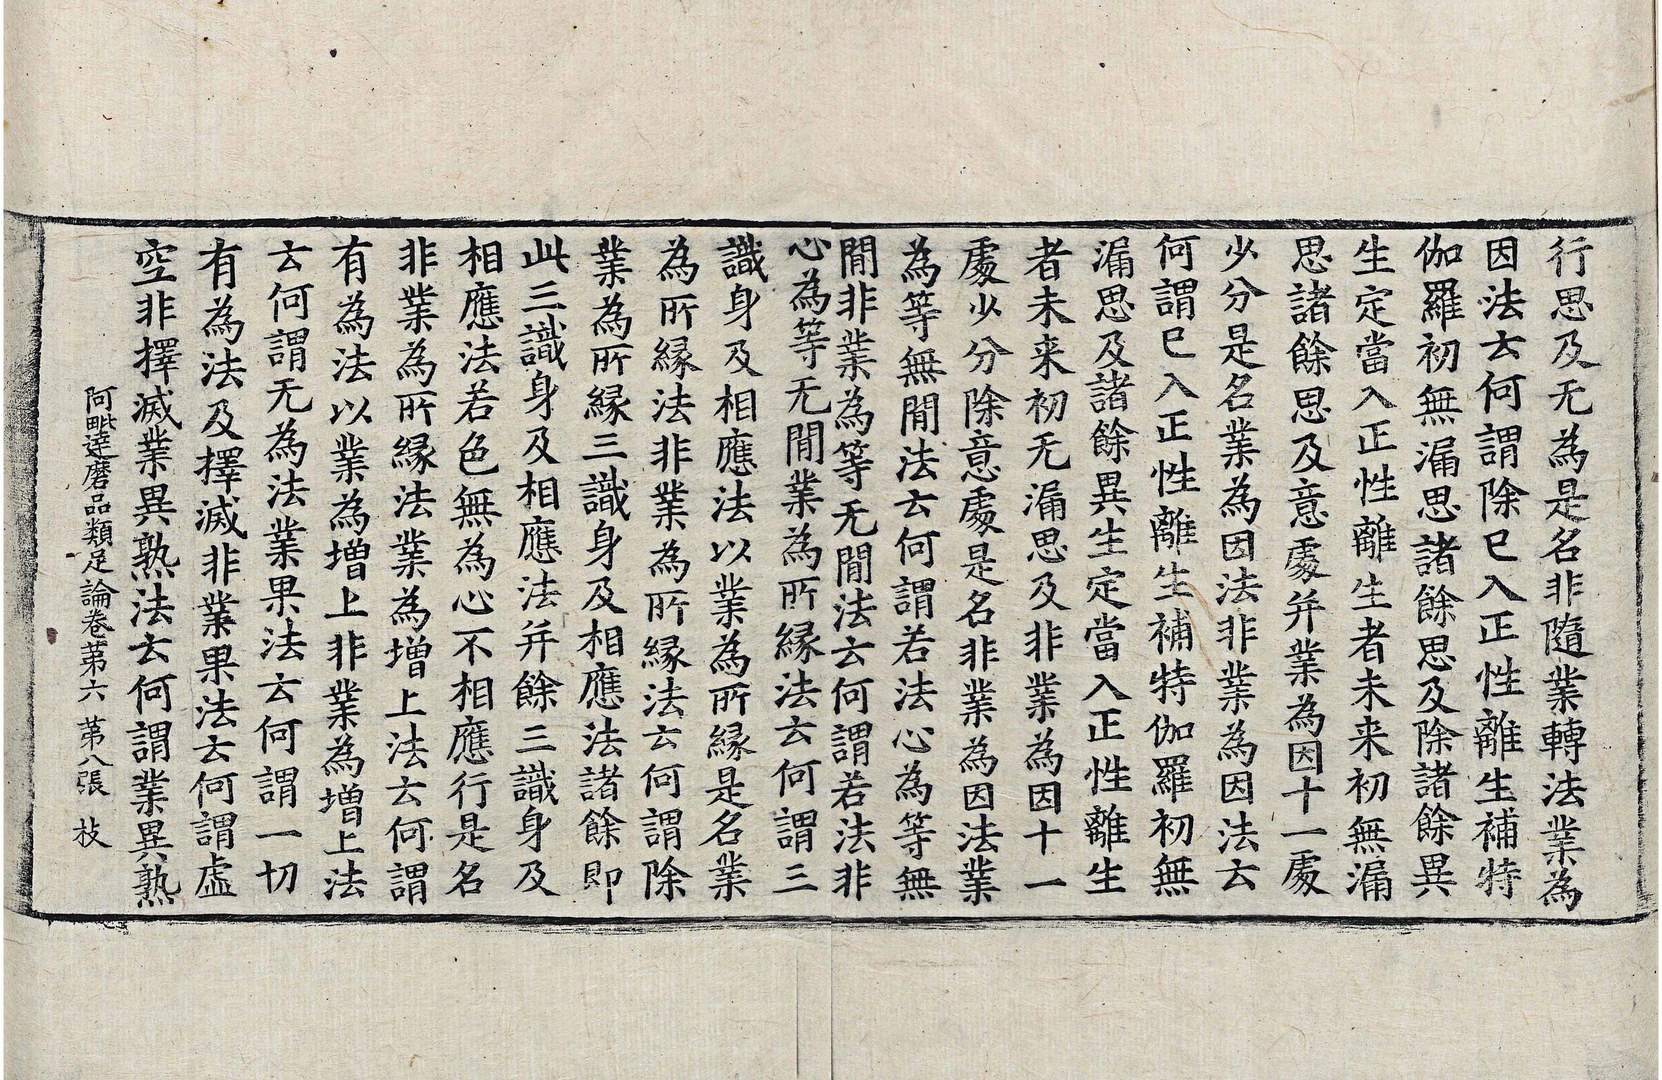 行思及无為是名非隨業轉法業為
因法云何謂除已入正性離生補特
伽羅初無漏思諸餘思及除諸餘異
生定當入正性離生者未来初無漏
思諸餘思及意處并業為因十一處
少分是名業為因法非業為因法云
何謂已入正性離生補特伽羅初無
漏思及諸餘異生定當入正性離生
者未来初无漏思及非業為因十一
處少分除意處是名非業為因法業
為等無間法云何謂若法心為等無
間非業為等无間法云何謂若法非
心為等无間業為所縁法云何謂三
識身及相應法以業為所縁是名業
為所縁法非業為所縁法云何謂除
業為所縁三識身及相應法諸餘即
此三識身及相應法并餘三識身及
相應法若色無為心不相應行是名
非業為所縁法業為增上法云何謂
有為法以業為增上非業為增上法
云何謂无為法業果法云何謂一切
有為法及擇滅非業果法云何謂虛
空非擇滅業異熟法云何謂業異熟
阿毗達磨品類足論卷第六 第八張 枝